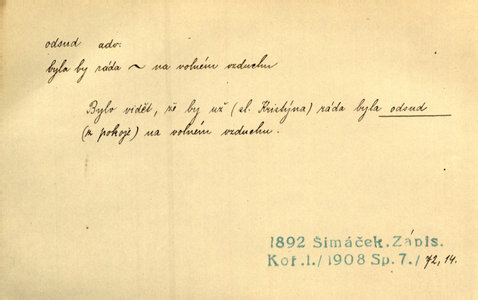 odsud adv.
byla by ráda ~ na volném vzduchu
Bylo vidět, že by už (sl. Kristýna) ráda byla odsud
(z pokoje) na volném vzduchu.
1892 Šimáček. Zápis.
Koř. 1./1908 Sp. 7./72, 14.